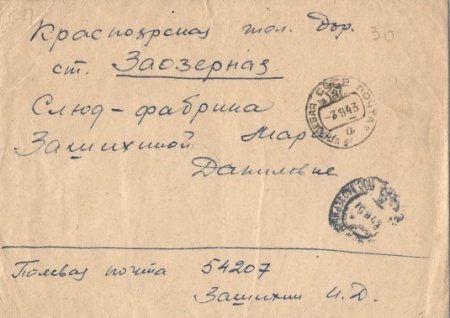 Красноярская жел. дор. 30
ст. Заозерная
Слюд-фабрика
Зашихиной Марии
Даниловне
СССР ПОЧТА
-7 8 43
а
Полевая почта 54207
Зашихин И.Д.